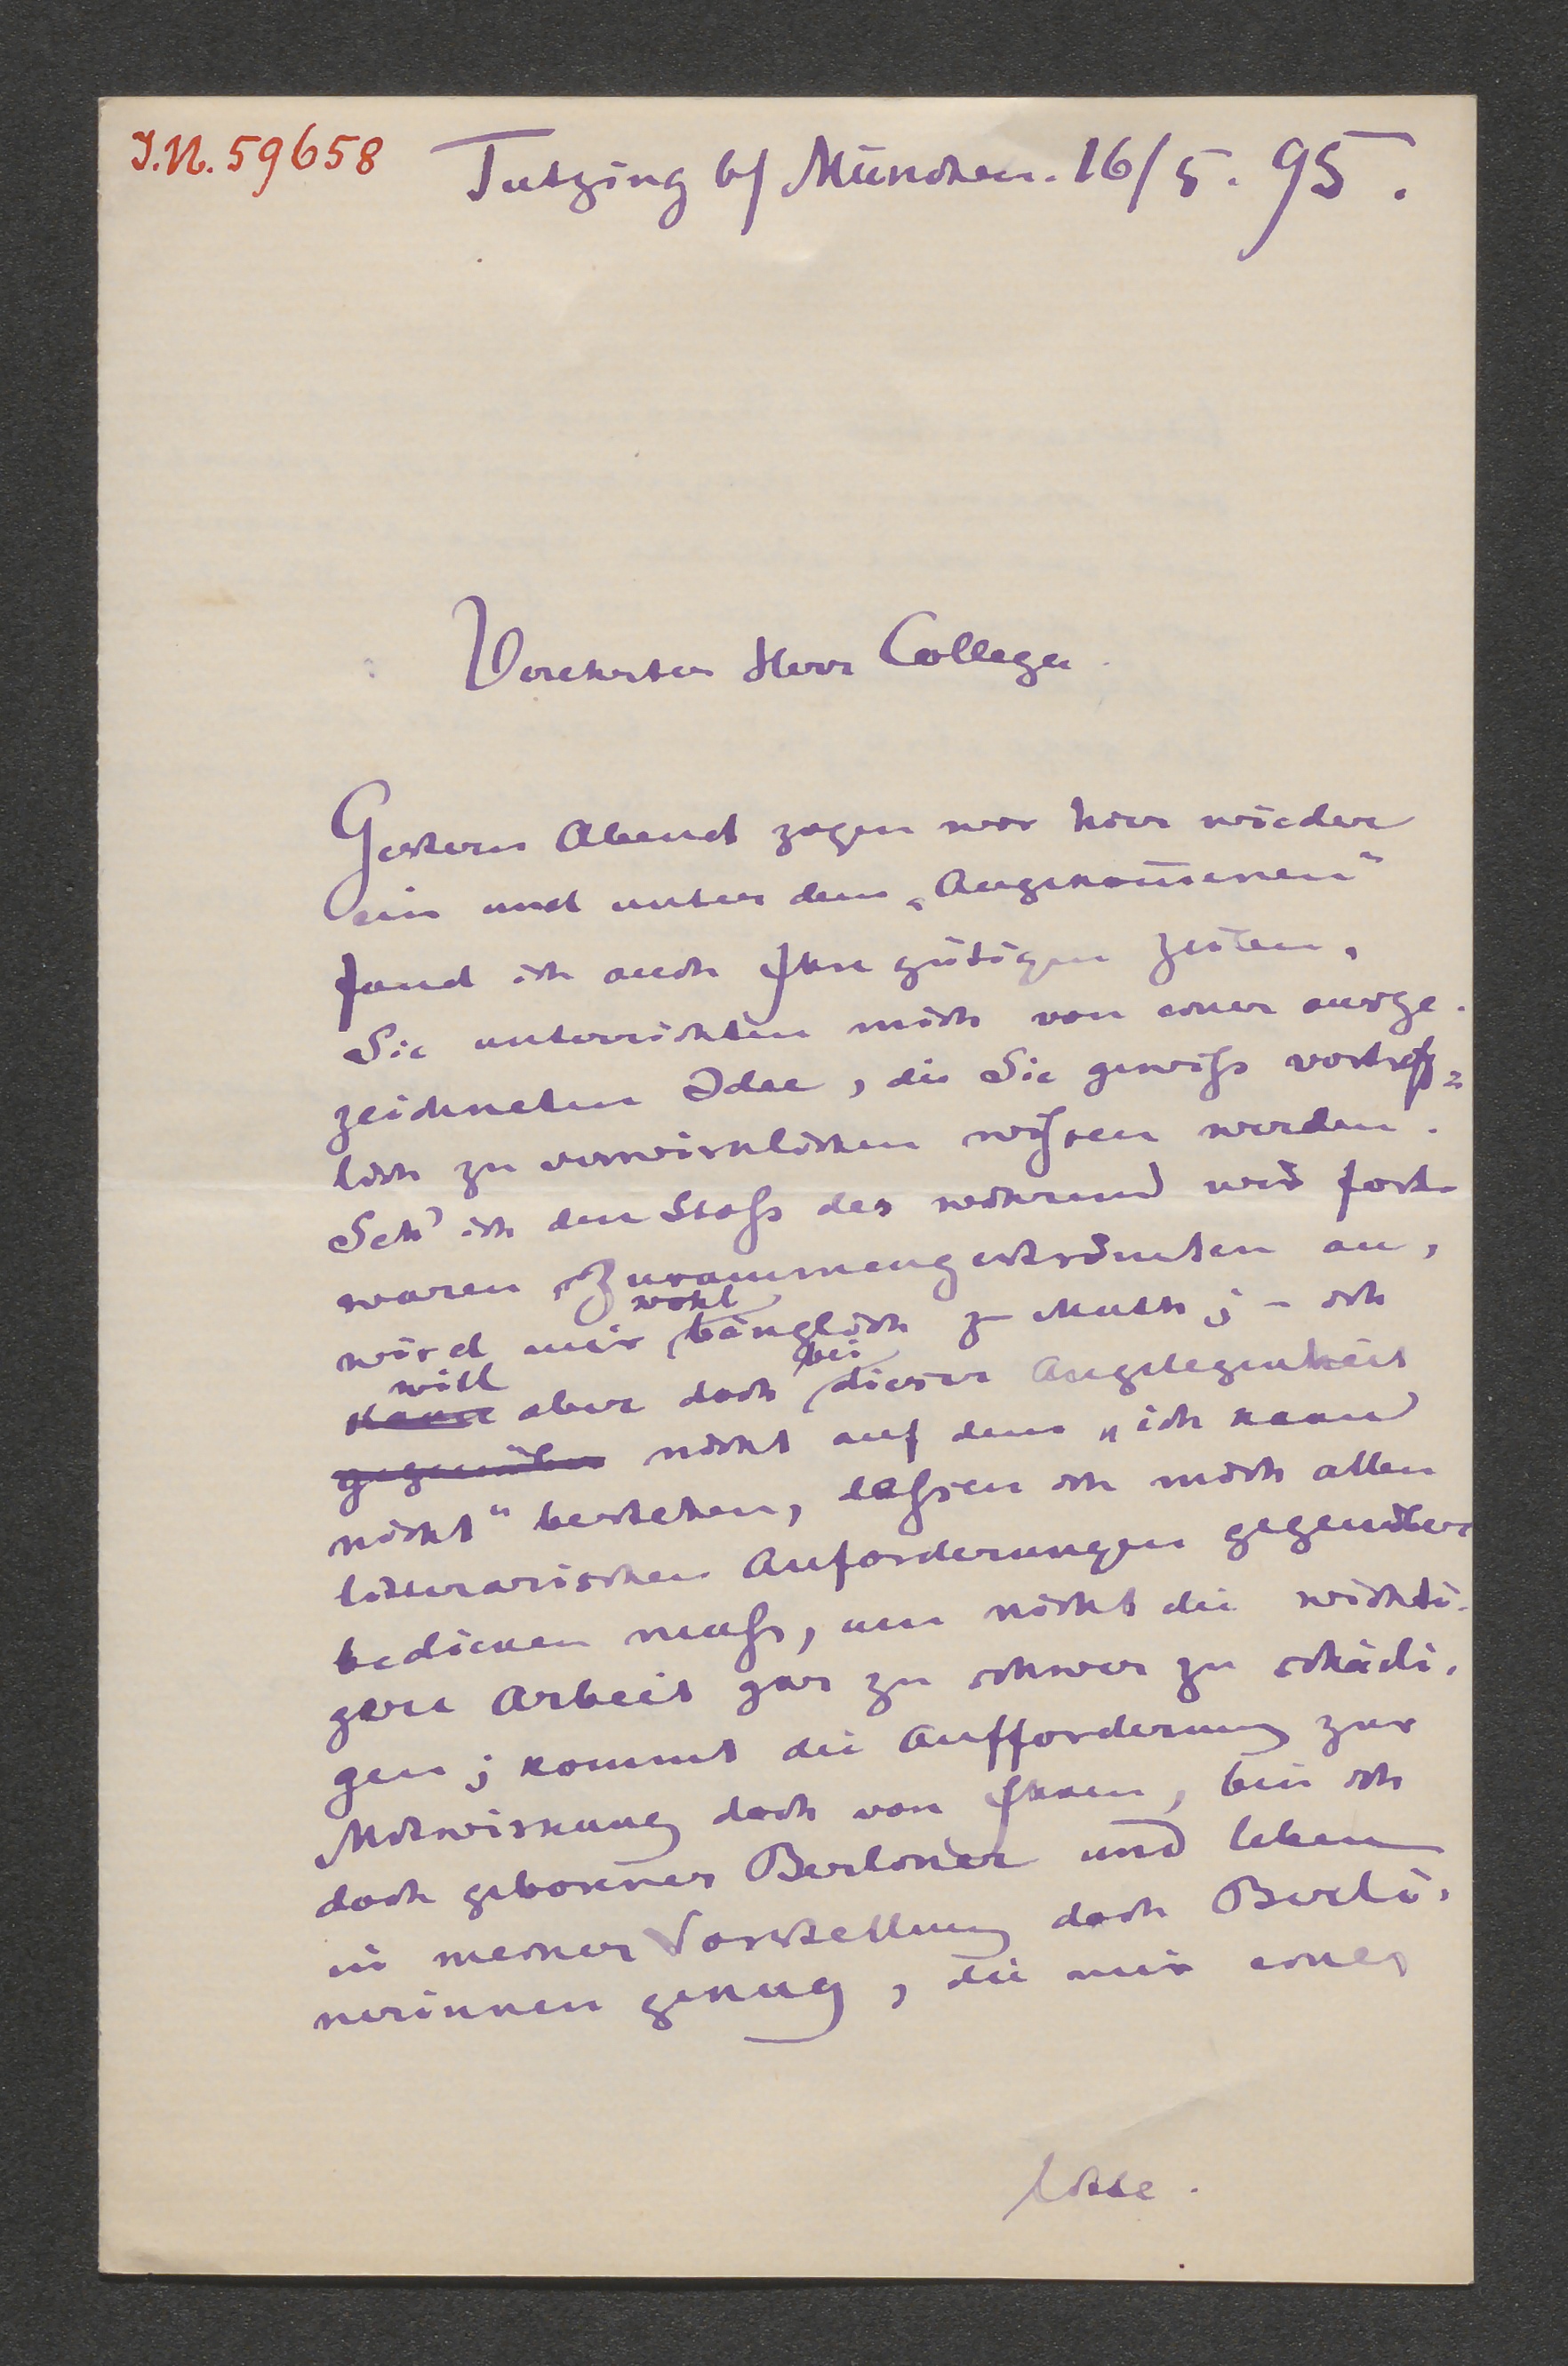 I.N. 59658
Tutzing b/ München. 16/5. 95.
Verehrter Herr College
Gestern Abend zogen wir hier wieder
ein und unter dem „Angekom̅enen“
fand ich auch Ihre gütigen Zeilen.
Sie unterrichten mich von einer ausge-
zeichneten Idee, die Sie gewiß vortreff=
lich zu verwirklichen wißen werden.
Seh' ich den Stoß des während wir fort
waren Zusammengeströmten an,
wird mir wohl bänglich zu Muth; – ich
will aber doch bei dieser Angelegenheit
gegenüber nicht auf dem „ich kann
nicht“ bestehen, deßen ich mich allen
litterarischen Anforderungen gegenüber
bedienen muß, um nicht die wichti-
gere Arbeit gar zu schwer zu schädi-
gen; kommt die Aufforderung zur
Mitwirkung doch von Ihnen, bin ich
doch geborener Berliner und leben
in meiner Vorstellung doch Berli-
nerinnen genug, die mir eines